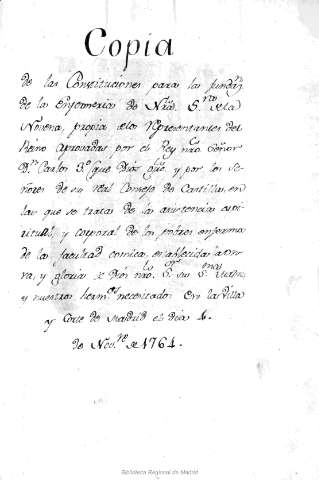 Copia
de las Constituciones para la fundan.
de la enfermeria de Nra. Sra. de la
Novena, propia de los representantes del
Reino aprovadas por el Rey nro. Señor
Dn. Carlos 3.º que Dios gue. y por los Se-
ñores de su real Consejo de Castilla, en
las que se trata de la asistencia espi-
ritual, y corporal de los pobres enfermos
de la facultad comica, establecida a onr-
ra, y gloria de Dios nro. Sr. su SSma. Madre
y nuestros hermos. necesitados en la Villa
y Corte de Madrid el dia 6.
de Novre. de 1764.
Biblioteca Regional de Madrid